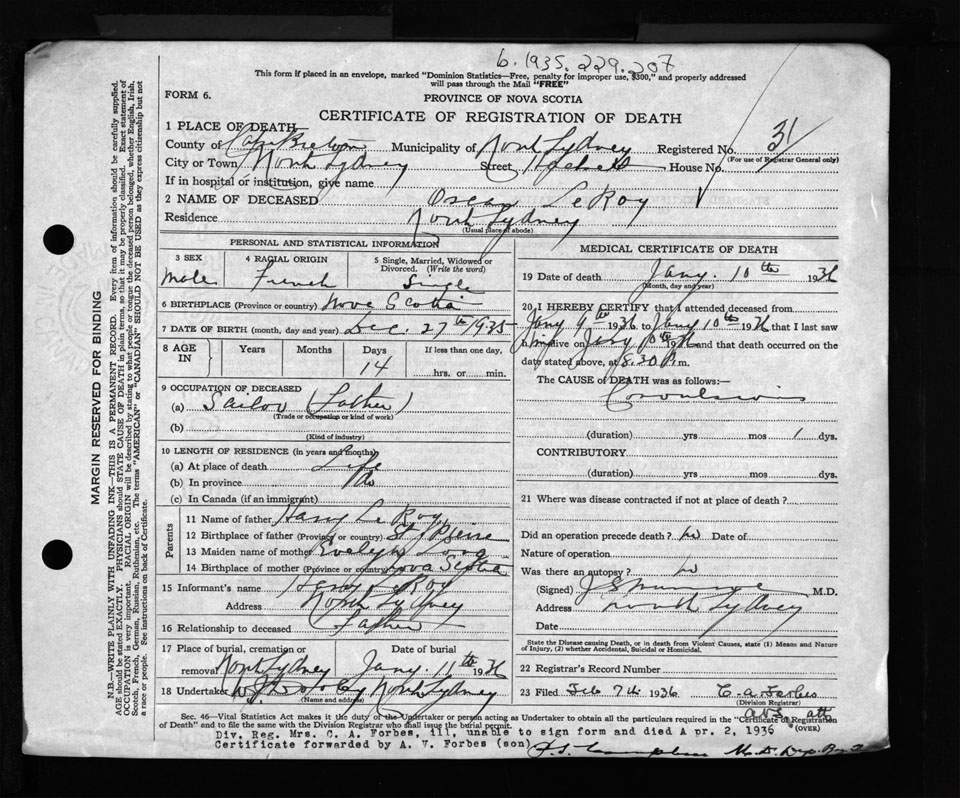 b. 1935. 229.207
This form if placed in an envelope, marked "Dominion Statistics—Free, penalty for improper use, $300," and properly addressed
will pass through the Mail "FREE"
FORM 6.
PROVINCE OF NOVA SCOTIA
CERTIFICATE OF REGISTRATION OF DEATH
1 PLACE OF DEATH
County of Cape Breton Municipality of North Sydney Registered No. 31
(For use of Registrar General only)
City or Town North Sydney Street House No.
If in hospital or institution, give name
2 NAME OF DECEASED Oscar LeRoy
Residence North Sydney
(Usual place of abode)
PERSONAL AND STATISTICAL INFORMATION
3 SEX
Male
4 RACIAL ORIGIN
French
5 Single, Married, Widowed or
Divorced. (Write the word)
Single
6 BIRTHPLACE (Province or country) Nova Scotia
7 DATE OF BIRTH (month, day and year) Dec. 27th 1935
8 AGE IN
Years Months Days If less than one day,
14 hrs. or min.
9 OCCUPATION OF DECEASED
(a) Sailor (Father)
(Trade or occupation or kind of work)
(b)
(Kind of industry)
10 LENGTH OF RESIDENCE (in years and months)
(a) At place of death Life
(b) In province do
(c) In Canada (if an immigrant)
Parents
11 Name of father Harry LeRoy
12 Birthplace of father (Province or country) St Pierre
13 Maiden name of mother Evelyn
14 Birthplace of mother (Province or country) Nova Scotia
15 Informant's name LeRoy
Address North Sydney
16 Relationship to deceased Father
17 Place of burial, cremation or removal Date of burial
North Sydney Jany. 11th 1936
18 Undertaker North Sydney
(Name and address)
MEDICAL CERTIFICATE OF DEATH
19 Date of death Jany. 10th 1936
(Month, day and year)
20 I HEREBY CERTIFY that I attended deceased from
Jany 9th 1936 to Jany 10th 1936 that I last saw
him alive on Jany 10th 1936 and that death occurred on the
date stated above, at 8.30 P.m.
The CAUSE OF DEATH was as follows:
Convulsions
(duration) yrs mos 1 dys.
CONTRIBUTORY
(duration) yrs mos dys.
21 Where was disease contracted if not at place of death?
Did an operation precede death? no Date of
Nature of operation
Was there an autopsy? no
(Signed) M.D.
Address North Sydney
Date
State the Disease causing Death, or in death from Violent Causes, state (1) Means and Nature
of Injury, (2) whether Accidental, Suicidal or Homicidal.
22 Registrar's Record Number
23 Filed Feb 7th 1936 C. A. Forbes
(Division Registrar)
Sec. 46—Vital Statistics Act makes it the duty of the Undertaker or person acting as Undertaker to obtain all the particulars required in the "Certificate of Registration
of Death" and to file the same with the Division Registrar who shall issue the burial permit.
(OVER)
Div. Reg. Mrs. C. A. Forbes, ill, unable to sign form and died Apr. 2, 1936
Certificate forwarded by A. V. Forbes (son)
MARGIN RESERVED FOR BINDING
N.B.—WRITE PLAINLY WITH UNFADING INK—THIS IS A PERMANENT RECORD. Every item of information should be carefully supplied.
AGE should be stated EXACTLY. PHYSICIANS should STATE CAUSE OF DEATH in plain terms, so that it may be properly classified. Exact statement of
OCCUPATION is very important. RACIAL ORIGIN will be described by stating to what people or tongue the deceased person belonged, whether English, Irish,
Scotch, French, German, Russian, Ruthenian, etc. The terms "AMERICAN" or "CANADIAN" SHOULD NOT BE USED as they express citizenship but not
a race or people. See instructions on back of Certificate.